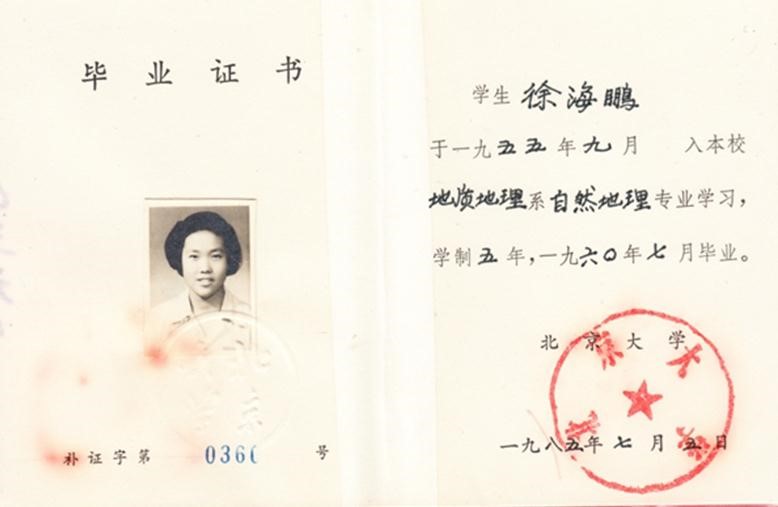 毕业证书
补证字第 036 号
学生 徐海鹏
于一九五五年九月 入本校
地质地理系自然地理专业学习，
学制五年，一九六〇年七月毕业。
北京大学
一九八五年七月五日
北京大学